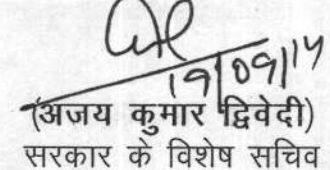 19/09/14
(अजय कुमार द्विवेदी)
सरकार के विशेष सचिव